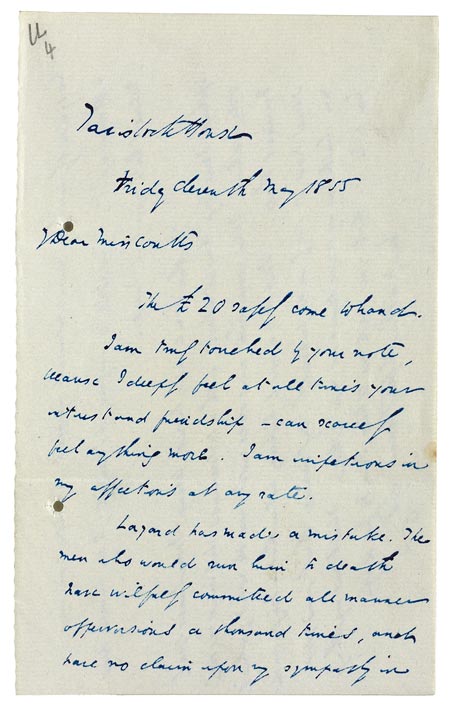 4
Tavistock House
Friday Eleventh May 1855
My Dear Miss Coutts
The £20 safely come to hand.
I am truly touched by your note,
because I deeply feel at all times your
interest and friendship – can scarcely
feel anything more. I am impetuous in
my affections at any rate.
Layard has made a mistake. The
men who would run him to death
have wilfully committed all manner
of perversions a thousand times, and
have no claim upon my sympathy in